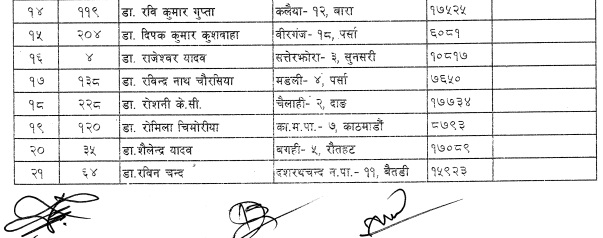 १४ ११९ डा. रवि कुमार गुप्ता कलैया- १२, बारा १७५२५
१५ २०४ डा. दिपक कुमार कुशवाहा वीरगंज- १८, पर्सा ६०८१
१६ ४ डा. राजेश्वर यादव सत्तेरझोरा- ३, सुनसरी १०८१७
१७ १३८ डा. रविन्द्र नाथ चौरसिया मडली- ४, पर्सा ७६५०
१८ २२८ डा. रोशनी के.सी. चैलाही- २, दाङ १७७३४
१९ १२० डा. रोमिला चिमोरीया का.म.पा.- ७, काठमाडौं ८७९३
२० ३५ डा.शैलेन्द्र यादव बगही- ५, रौतहट १७०८९
२१ ६४ डा.रविन चन्द दशरथचन्द न.पा.- ११, बैतडी १५९२३